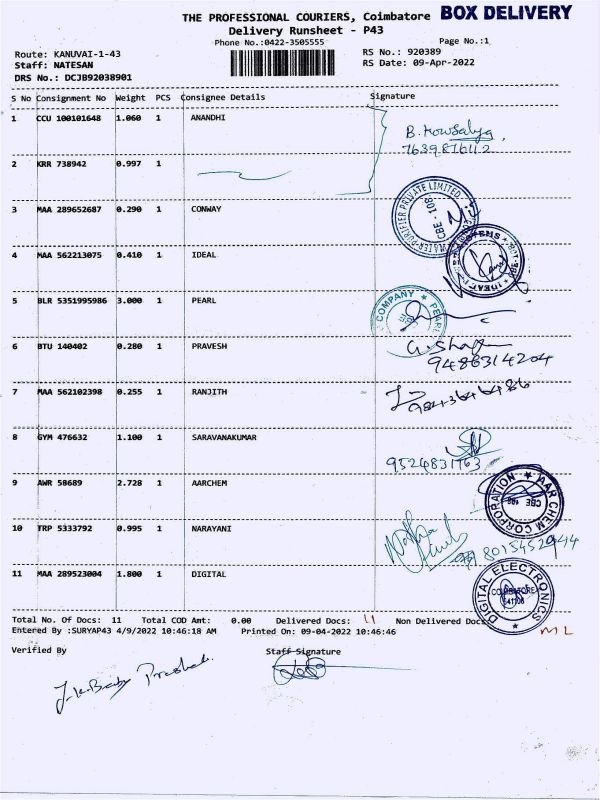 THE PROFESSIONAL COURIERS, Coimbatore BOX DELIVERY
Delivery Runsheet - P43
Phone No.:0422-3505555
Page No.:1
Route: KANUVAI-1-43
RS No.: 920389
Staff: NATESAN
RS Date: 09-Apr-2022
DRS No.: DCJB92038901
S No Consignment No Weight PCS Consignee Details Signature
1 CCU 100101648 1.060 1 ANANDHI
B. Kowsalya
7639876112
2 KRR 738942 0.997 1
3 MAA 289652687 0.290 1 CONWAY
WATER PURIFIER PRIVATE LIMITED
CBE - 108
4 MAA 562213075 0.410 1 IDEAL
5 BLR 5351995986 3.000 1 PEARL
COMPANY ★ PEARL
6 BTU 140402 0.280 1 PRAVESH
9486314204
7 MAA 562102398 0.255 1 RANJITH
9843646486
8 GYM 476632 1.100 1 SARAVANAKUMAR
9524831763
9 AWR 58689 2.728 1 AARCHEM
AAR CHEM CORPORATION ★
CBE
10 TRP 5333792 0.995 1 NARAYANI
8015452944
11 MAA 289523004 1.800 1 DIGITAL
DIGITAL ELECTRONICS ★
COIMBATORE
641108
Total No. Of Docs: 11 Total COD Amt: 0.00 Delivered Docs: 11 Non Delivered Docs
Entered By :SURYAP43 4/9/2022 10:46:18 AM Printed On: 09-04-2022 10:46:46
ML
Verified By Staff Signature